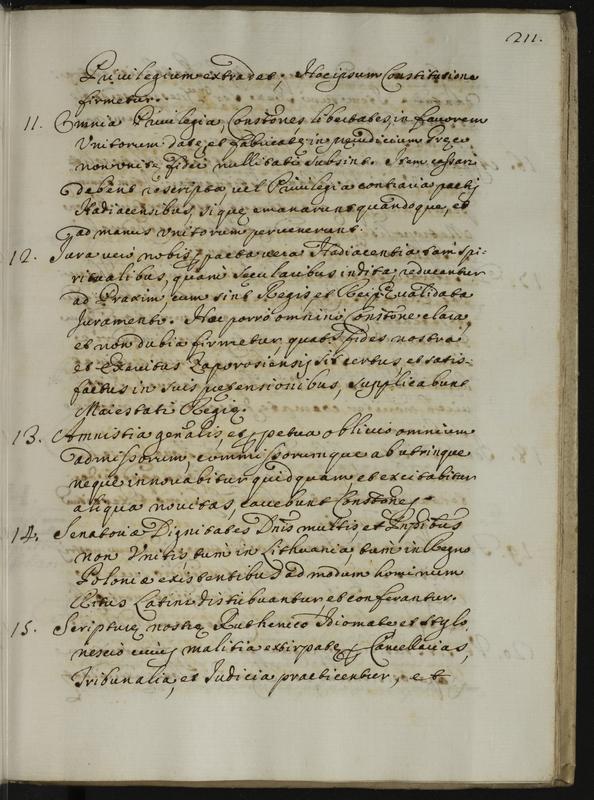 211.
Privilegium extradet; Hoc ipsum Constitutione
firmetur.
11. Omnia Privilegia, Constõnes, libertates, in favorem
Unitorum datę, et fabricatę in pejudicium Gręc
non unitę fidei nullitati subsint. Item cassari
debent rescripta vel Privilegia contraria pactis
Hadiacensibus, si quę emanarunt quandoque, et
ad manus Unitorum pervenerunt.
12. Jura vero nobis, pacta vera Hadiacentia tam spi-
ritualibus, quam secularibus indita reducantur
ad Praxim, cum sint Regis et Reip. validata
Juramento. Hoc porro omnino Constõne clara,
et non dubia firmetur, quatꝰ fides nostra
et Exercitus Zaporosiensis sit certus, et satis-
factus in suis pretensionibus, supplicabunt
Maiestati Regię.
13. Amnistia genãlis, et ppetua oblivio omnium
admissorum, commissorumque ab utrinque
neque innovabitur quidquam et excitabitur
aliqua novitas, cavebunt Constõnes.
14. Senatoriæ Dignitates Dnis multis et
non Unitis tum in Lithuania, tam in Regno
Poloniæ existentibus ad modum hominum
Ritus Latini distribuantur et conferantur.
15. Scripturę nostrę Ruthenico Idiomate et stylo,
nescio cuius malitia extirpatę Cancellarias,
Tribunalia, et Judicia practicentur, et